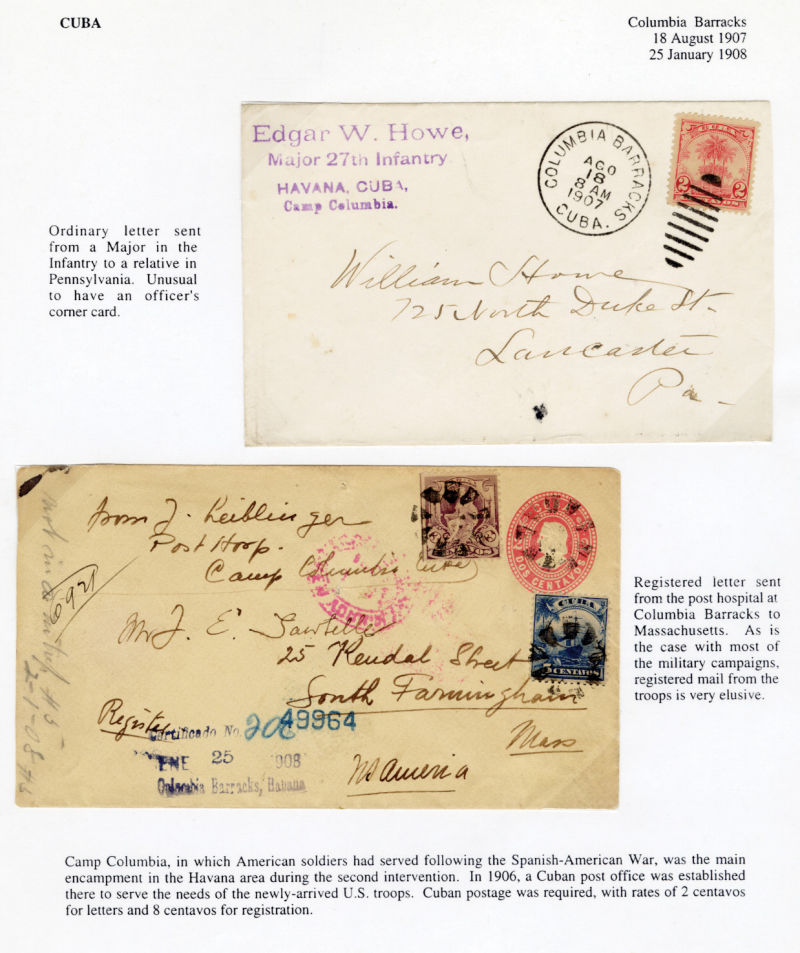 CUBA
Columbia Barracks
18 August 1907
25 January 1908
Edgar W. Howe,
Major 27th Infantry
HAVANA, CUBA,
Camp Columbia.
COLUMBIA BARRACKS
AGO
18
8 AM
1907
CUBA.
2
2
Ordinary letter sent
from a Major in the
Infantry to a relative in
Pennsylvania. Unusual
to have an officer's
corner card.
William Howe
725 North Duke St-
Lancaster
Pa-
from J. Leiblinger
Post Hosp.
Camp Columbia Cuba
DOS CENTAVOS
6921
CUBA
5 CENTAVOS
Mr J. E. Sawtelle
25 Kendal Street
South Farmingham
Mass
Register
Certificado No. 208
49964
ENE 25 1908
Columbia Barracks, Habana
2-1-08
America
Registered letter sent
from the post hospital at
Columbia Barracks to
Massachusetts. As is
the case with most of
the military campaigns,
registered mail from the
troops is very elusive.
Camp Columbia, in which American soldiers had served following the Spanish-American War, was the main
encampment in the Havana area during the second intervention. In 1906, a Cuban post office was established
there to serve the needs of the newly-arrived U.S. troops. Cuban postage was required, with rates of 2 centavos
for letters and 8 centavos for registration.